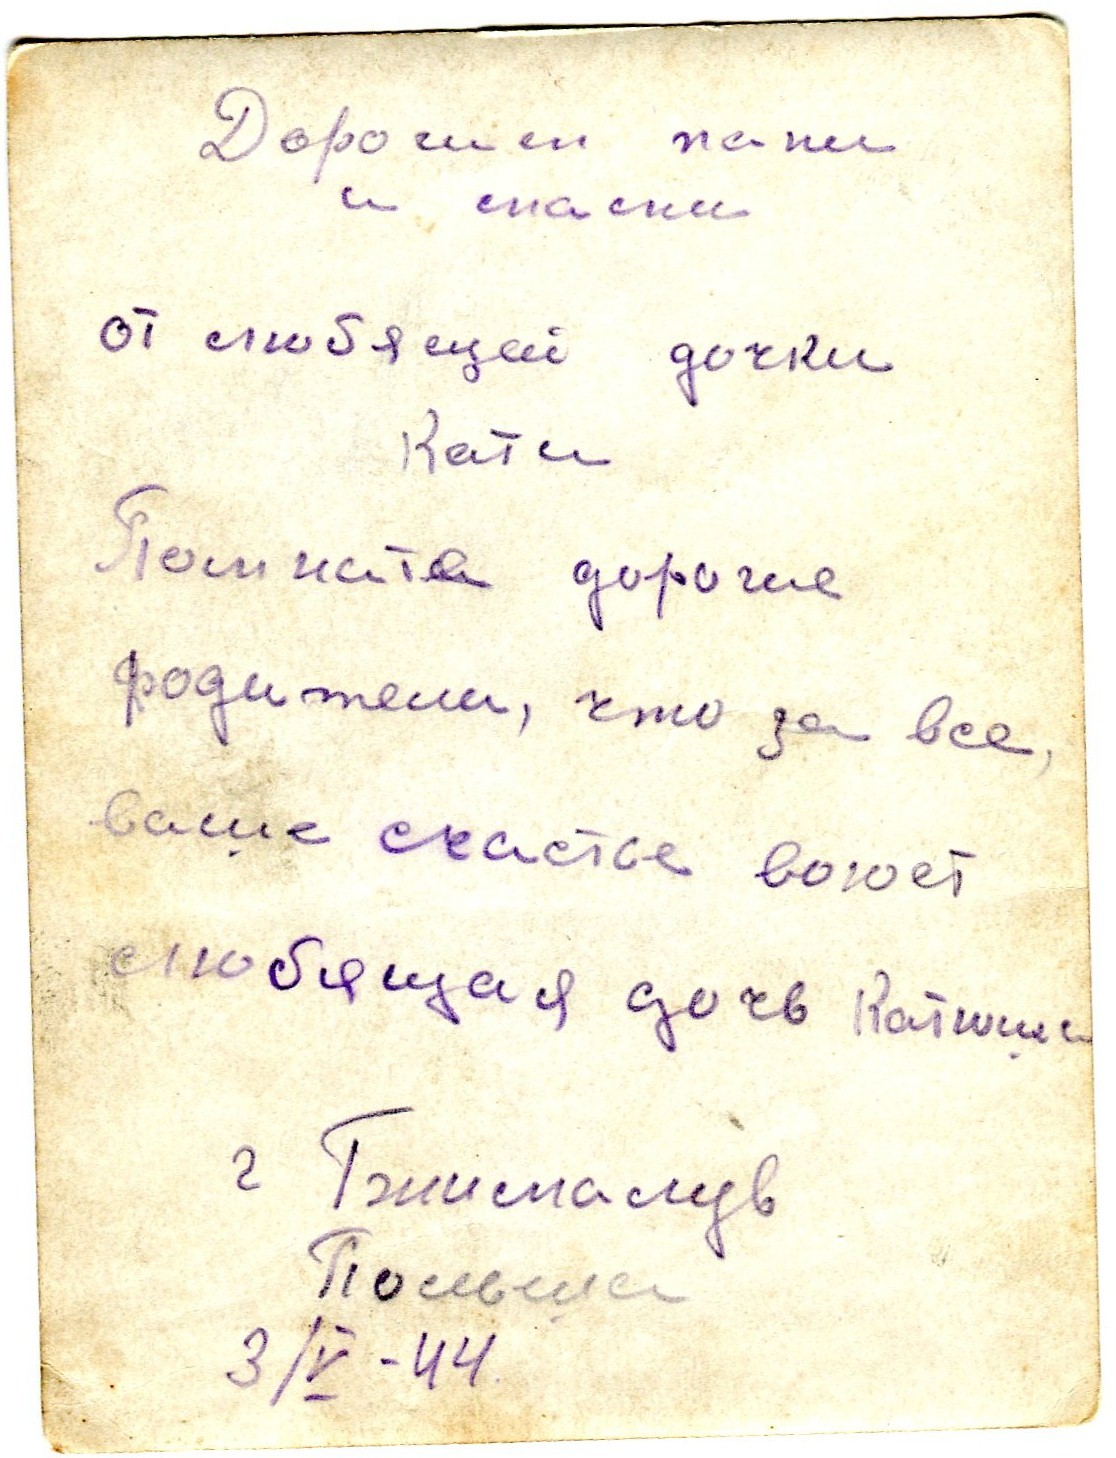 Дорогим папи
и мамки
от любящей дочки
Кати
Помните дорогие
родители, что за все,
ваше счастье воюет
любящая дочь Катюша
г Гжималув
Польша
3/V -44.